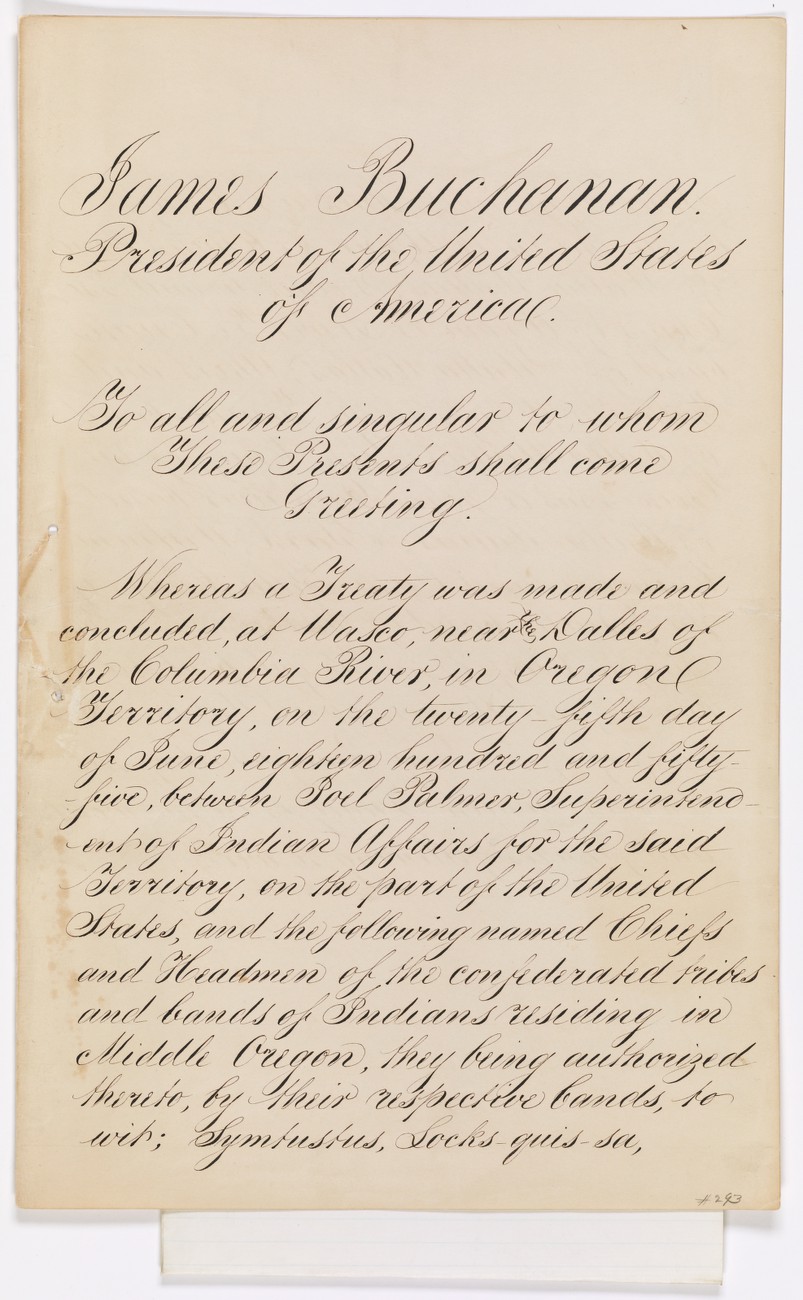 James Buchanan.
President of the United States
of America.
To all and singular to whom
These Presents shall come
Greeting.
Whereas a Treaty was made and
concluded, at Wasco, near the Dalles of
the Columbia River, in Oregon
Territory, on the twenty-fifth day
of June, eighteen hundred and fifty-
-five, between Joel Palmer, Superintend-
-ent of Indian Affairs for the said
Territory, on the part of the United
States, and the following named Chiefs
and Headmen of the confederated tribes
and bands of Indians residing in
Middle Oregon, they being authorized
thereto, by their respective bands, to
wit; Symtustus, Locks-quis-sa,
#293